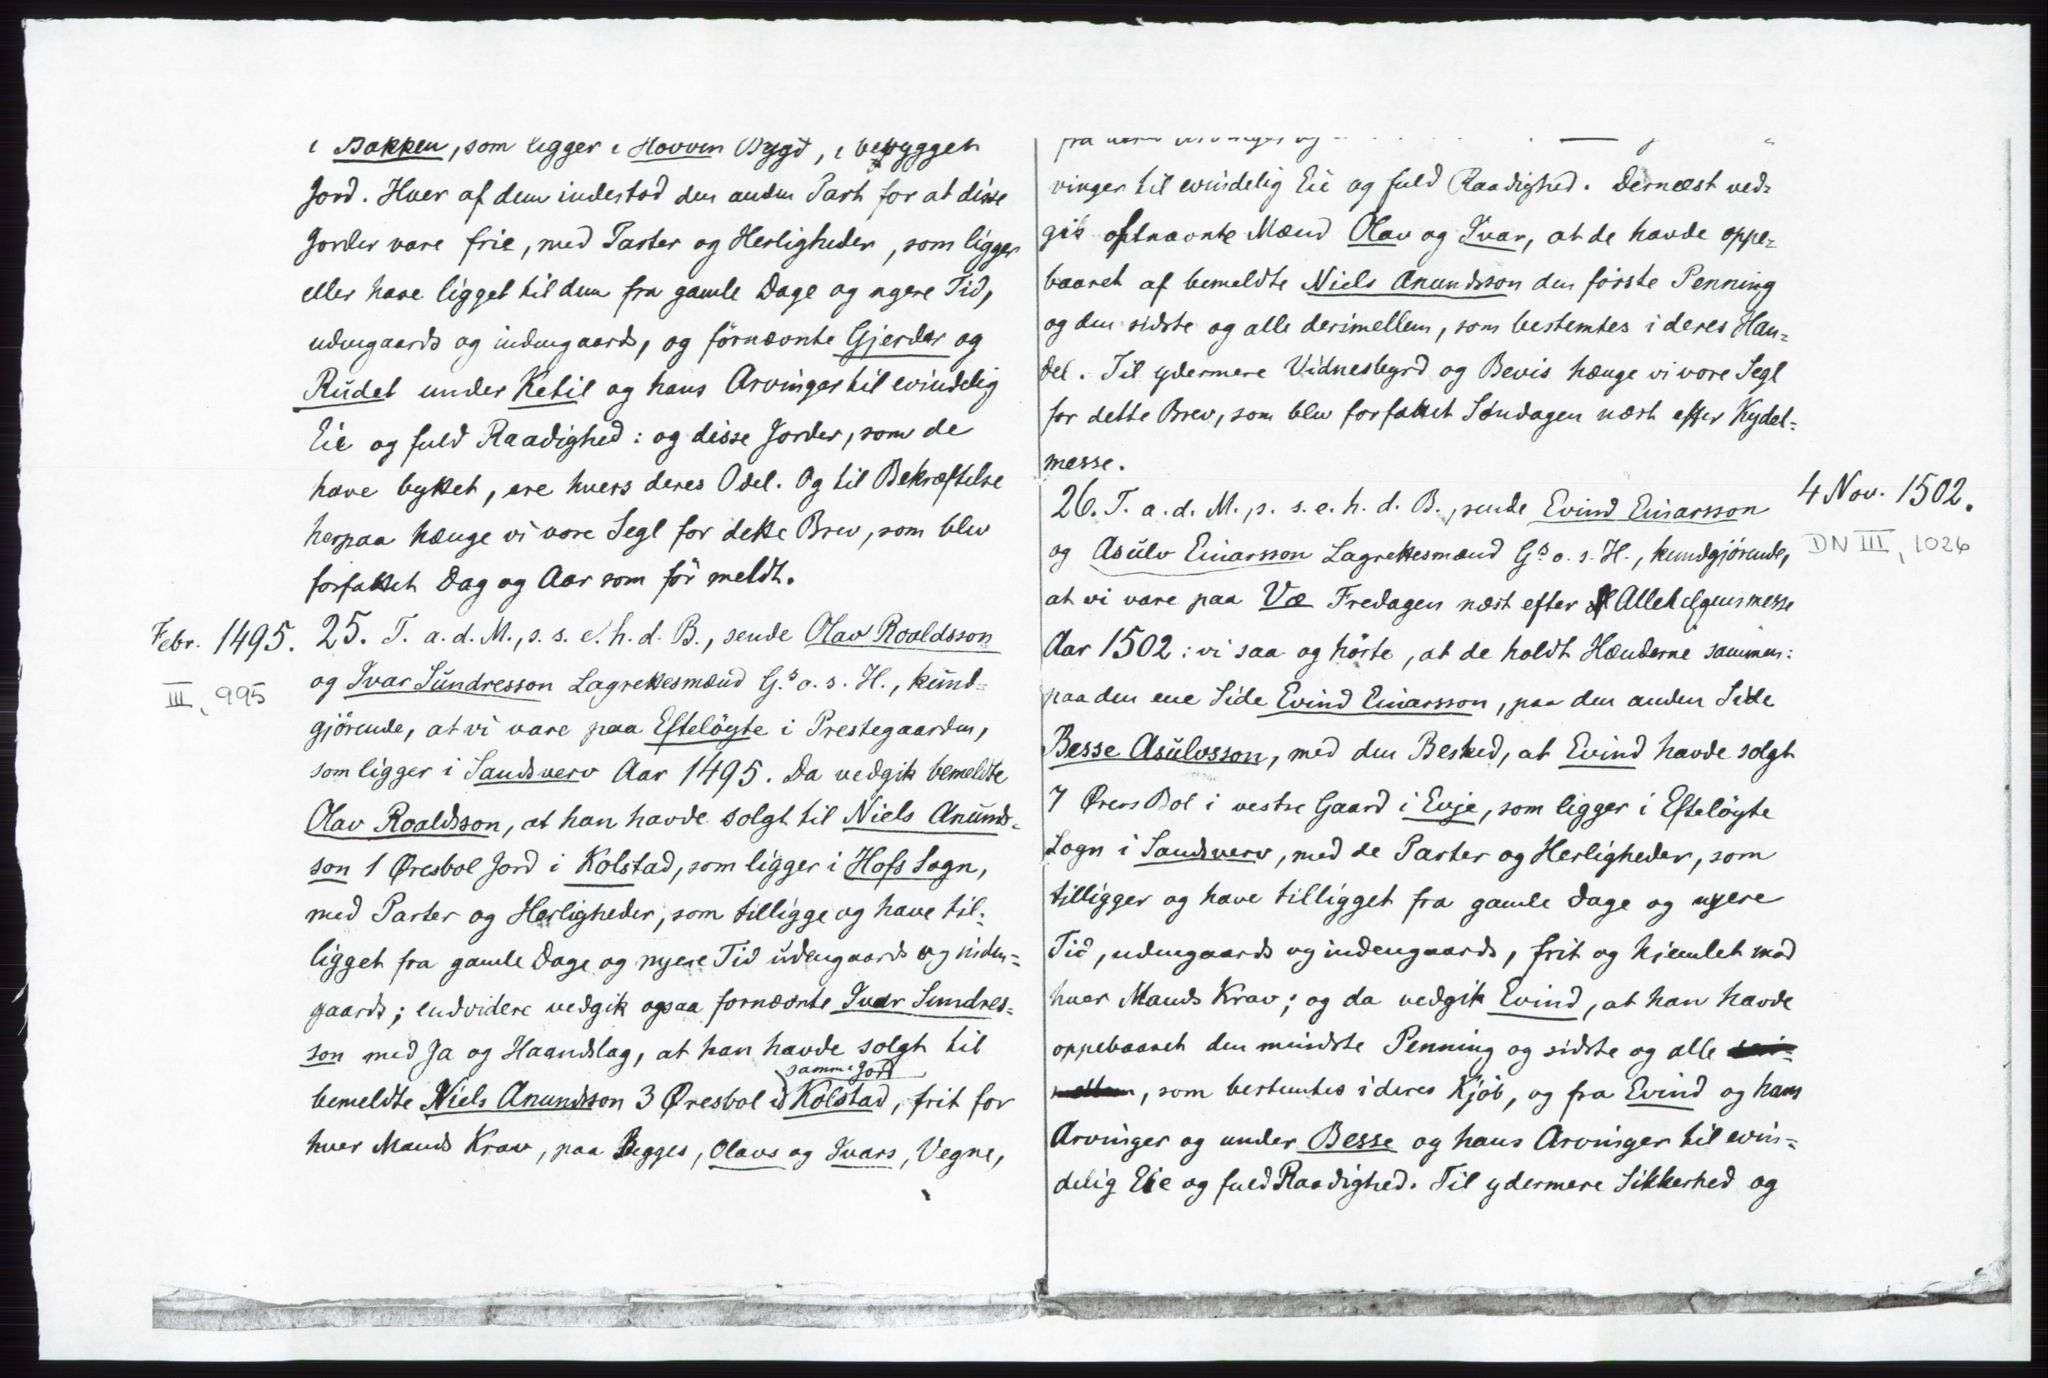 i Bakken, som ligger i Hovvin Bygd, i bebygget
Jord. Hver af dem indestod den anden Part for at disse
Jorder vare frie, med Parter og Herligheder, som ligger
eller have ligget til dem fra gamle Dage og nyere Tid,
udengaards og indengaards, og førnævnte Gjerdar og
Rudet under Ketil og hans Arvingar til evindelig
Eie og fuld Raadighed: og disse Jorder, som de
have byttet, ere hvers deres Odel. Og til Bekræftelse
herpaa hænge vi vore Segl for dette Brev, som blev
forfattet Dag og Aar som før meldt.
Febr. 1495.
III, 995
25. T. a. d. M., s. s. e. h. d. B., sende Olav Roaldsson
og Ivar Sundresson Lagrettesmænd G.s o. s. H., kund-
gjørende, at vi vare paa Efteløyte i Prestegaarden,
som ligger i Sandsverv Aar 1495. Da vedgik bemeldte
Olav Roaldsson, at han havde solgt til Niels Anunds-
son 1 Øresbol Jord i Kolstad, som ligger i Hofs Sogn,
med Parter og Herligheder, som tilligge og have til-
ligget fra gamle Dage og nyere Tid udengaards og inden-
gaards; endvidere vedgik ogsaa fornævnte Ivar Sundres-
son med Ja og Haandslag, at han havde solgt til
samme Jord
bemeldte Niels Anundsson 3 Øresbol i Kolstad, frit for
hver Mands Krav, paa Begges, Olavs og Ivars, Vegne,
vinger til evindelig Eie og fuld Raadighed. Dernæst ved-
gik oftnævnte Mænd Olav og Ivar, at de havde oppe-
baaret af bemeldte Niels Anundsson den første Penning
og den sidste og alle derimellem, som bestemtes i deres Han-
del. Til ydermere Vidnesbyrd og Bevis hænge vi vore Segl
for dette Brev, som blev forfattet Søndagen næst efter Kydel-
messe.
4 Nov. 1502.
DN III, 1026
26. T. a. d. M., s. s. e. h. d. B., sende Evind Einarsson
og Asulv Einarsson Lagrettesmænd G.s o. s. H., kundgjørende,
at vi vare paa Væ Fredagen næst efter Allehelgensmesse
Aar 1502: vi saa og hørte, at de holdt Hænderne sammen:
paa den ene Side Evind Einarsson, paa den anden Side
Besse Asulvsson, med den Besked, at Evind havde solgt
7 Ørers Bol i vestre Gaard i Evje, som ligger i Efteløyte
Sogn i Sandsverv, med de Parter og Herligheder, som
tilligger og have tilligget fra gamle Dage og nyere
Tid, udengaards og indengaards, frit og hjemlet mod
hver Mands Krav; og da vedgik Evind, at han havde
oppebaaret den mindste Penning og sidste og alle
, som bestemtes i deres Kjøb, og fra Evind og hans
Arvinger og under Besse og hans Arvinger til evin-
delig Eie og fuld Raadighed. Til ydermere Sikkerhed og